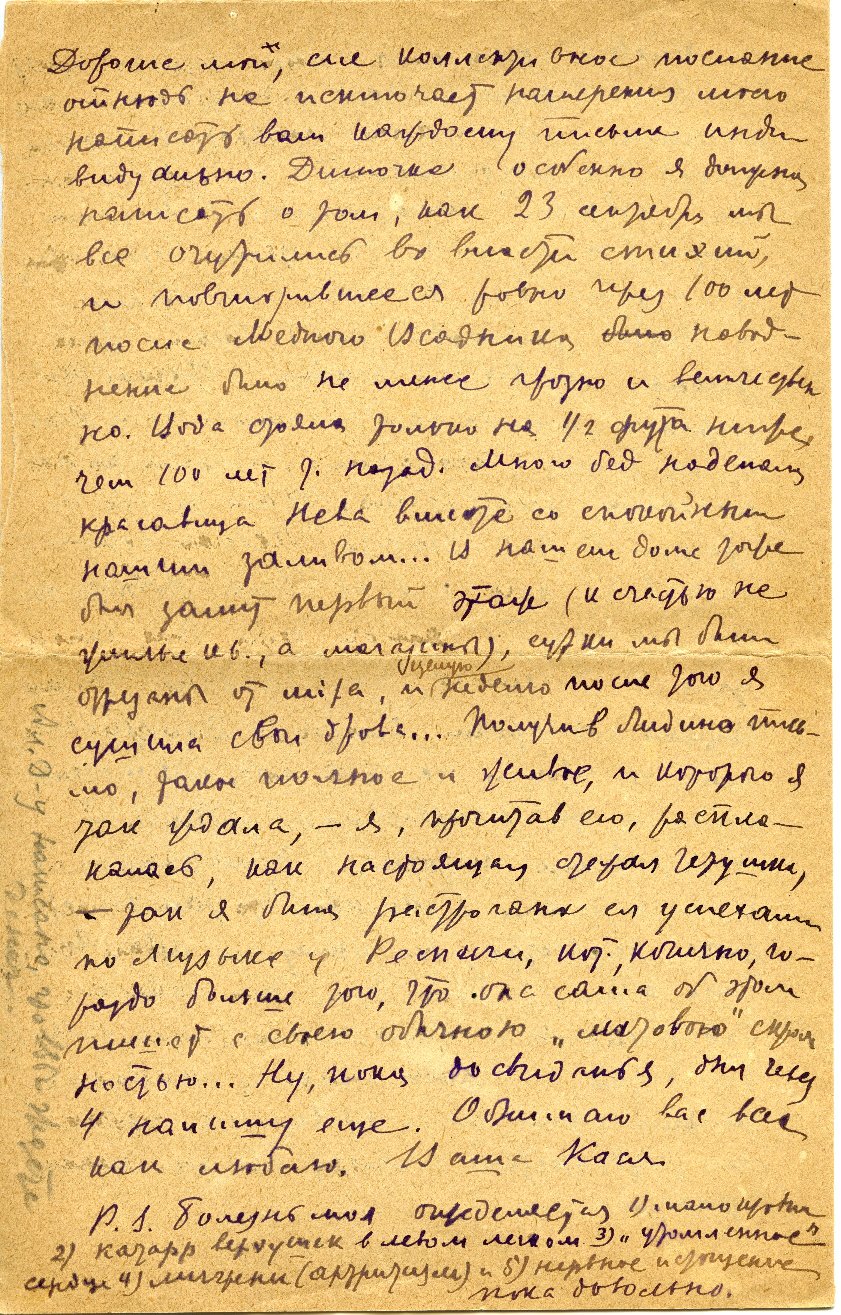 Дорогие мои, сие коллективное послание
отнюдь не исключает намерения моего
написать вам каждому письма инди-
видуально. Димочке особенно я должна
написать о том, как 23 сентября мы
все очутились во власти стихий,
и повторившееся ровно через 100 лет
после Медного Всадника было навод-
нение было не менее грозно и величествен
но. Вода стояла только на 1/2 фута ниже,
чем 100 лет т. назад. Много бед наделала
красавица Нева вместе со спокойным
нашим заливом... В нашем доме тоже
был залит первый этаж (к счастью не
жилые кв., а магазины), сутки мы были
отрезаны от мiра, и целую неделю после того я
сушила свои дрова... Получив Лидино пись-
мо, такое полное и живое, и которого я
так ждала, – я, прочитав его, распла-
калась, как настоящая старая
– так я была растрогана ея успехами
по музыке у Респиги, кот., конечно, го-
раздо больше того, что она сама об этом
пишет с своею обычною „матовою" скром
ностью... Ну, пока до свиданья, дня через
4 напишу еще. Обнимаю вас всех
как люблю. Ваша Кася
P.S. Болезнь моя определяется 1) малокровием
2) катарр верхушек в левом легком 3) „утомленное"
сердце 4) мигрени (артритизм) и 5) нервное истощение
пока довольно.